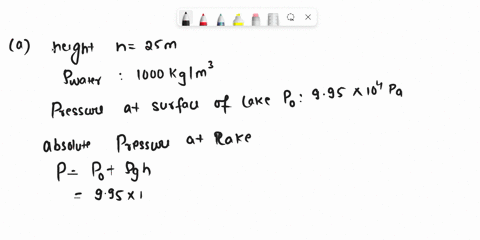 (a) height h = 25m
ρwater : 1000 Kg/m³
Pressure at surface of lake P₀ : 9.95 × 10⁴ Pa
absolute Pressure at Lake
P = P₀ + ρgh
= 9.95 × 1